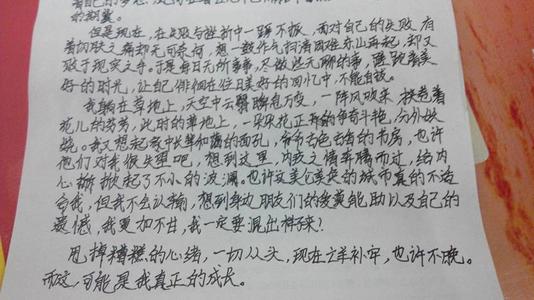 的期望。
但是现在,在失败与挫折中一蹶不振,面对自己的失败,有
着切肤之痛却无可奈何,想一鼓作气扫清困难东山再起,却又
败于现实之手。于是每日无所事事,尽做些无聊的事,蹉跎着美
好的时光,让自己徘徊在往日美好的回忆中,不能自拔。
我躺在草地上,天空中云翳瞬息万变,一阵风吹来,挟卷着
花儿的芬芳,此时的草地上,一朵朵花正开的争奇斗艳,分外妖
娆。我又想起家中长辈和蔼的面孔,爷爷古色古香的书房,也许
他们对我很失望吧,想到这里,内疚之情奔腾而过,给内
心掀起了不小的波澜。也许这美仑美奂的城市真的不适
合我,但我不会认输,想到身边朋友们的爱莫能助以及自己的
遗憾,我更加不甘,我一定要混出样子来!
甩掉糟糕的心绪,一切从头,现在亡羊补牢,也许不晚。
而这,可能是我真正的成长。